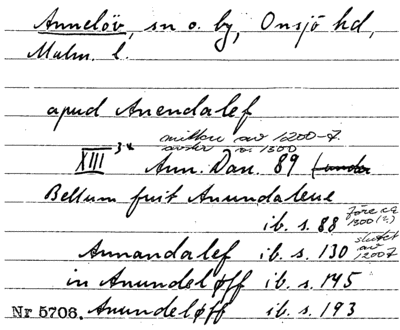 Annelöv, sn o. by, Onsjö hd,
Malm. l.
apud Anendalef
mitten av 1200-t.
XIII 3x Ann. Dan. 89 (under
Bellum fuit Anundaleue
ib. s. 88 före ca 1300 (?)
Annandalef ib. s. 130 slutet av 1200t
in Anundeløff ib. s. 145
Nr 5708. Anundeløff ib. s. 193